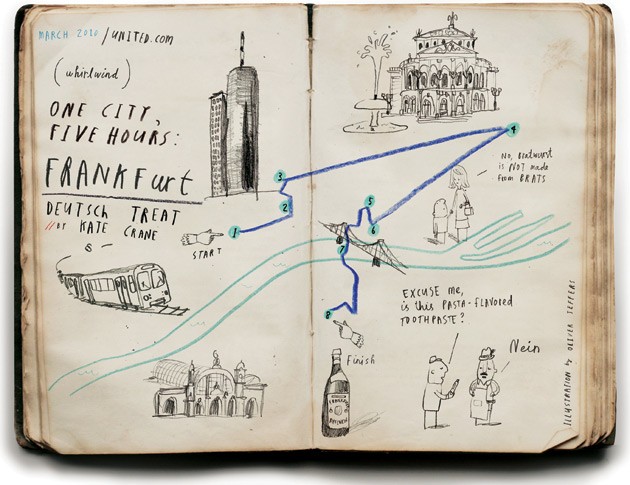 MARCH 2010 / UNITED.COM
(whirlwind)
ONE CITY,
FIVE HOURS:
FRANKFURT
DEUTSCH TREAT
// BY KATE CRANE
START
1
2
3
4
5
6
7
8
NO, BRATWURST
is NOT made
from BRATS
EXCUSE me,
is this PASTA-flavored
TOOTHPASTE?
Nein
Finish
ILLUSTRATION by OLIVER JEFFERS